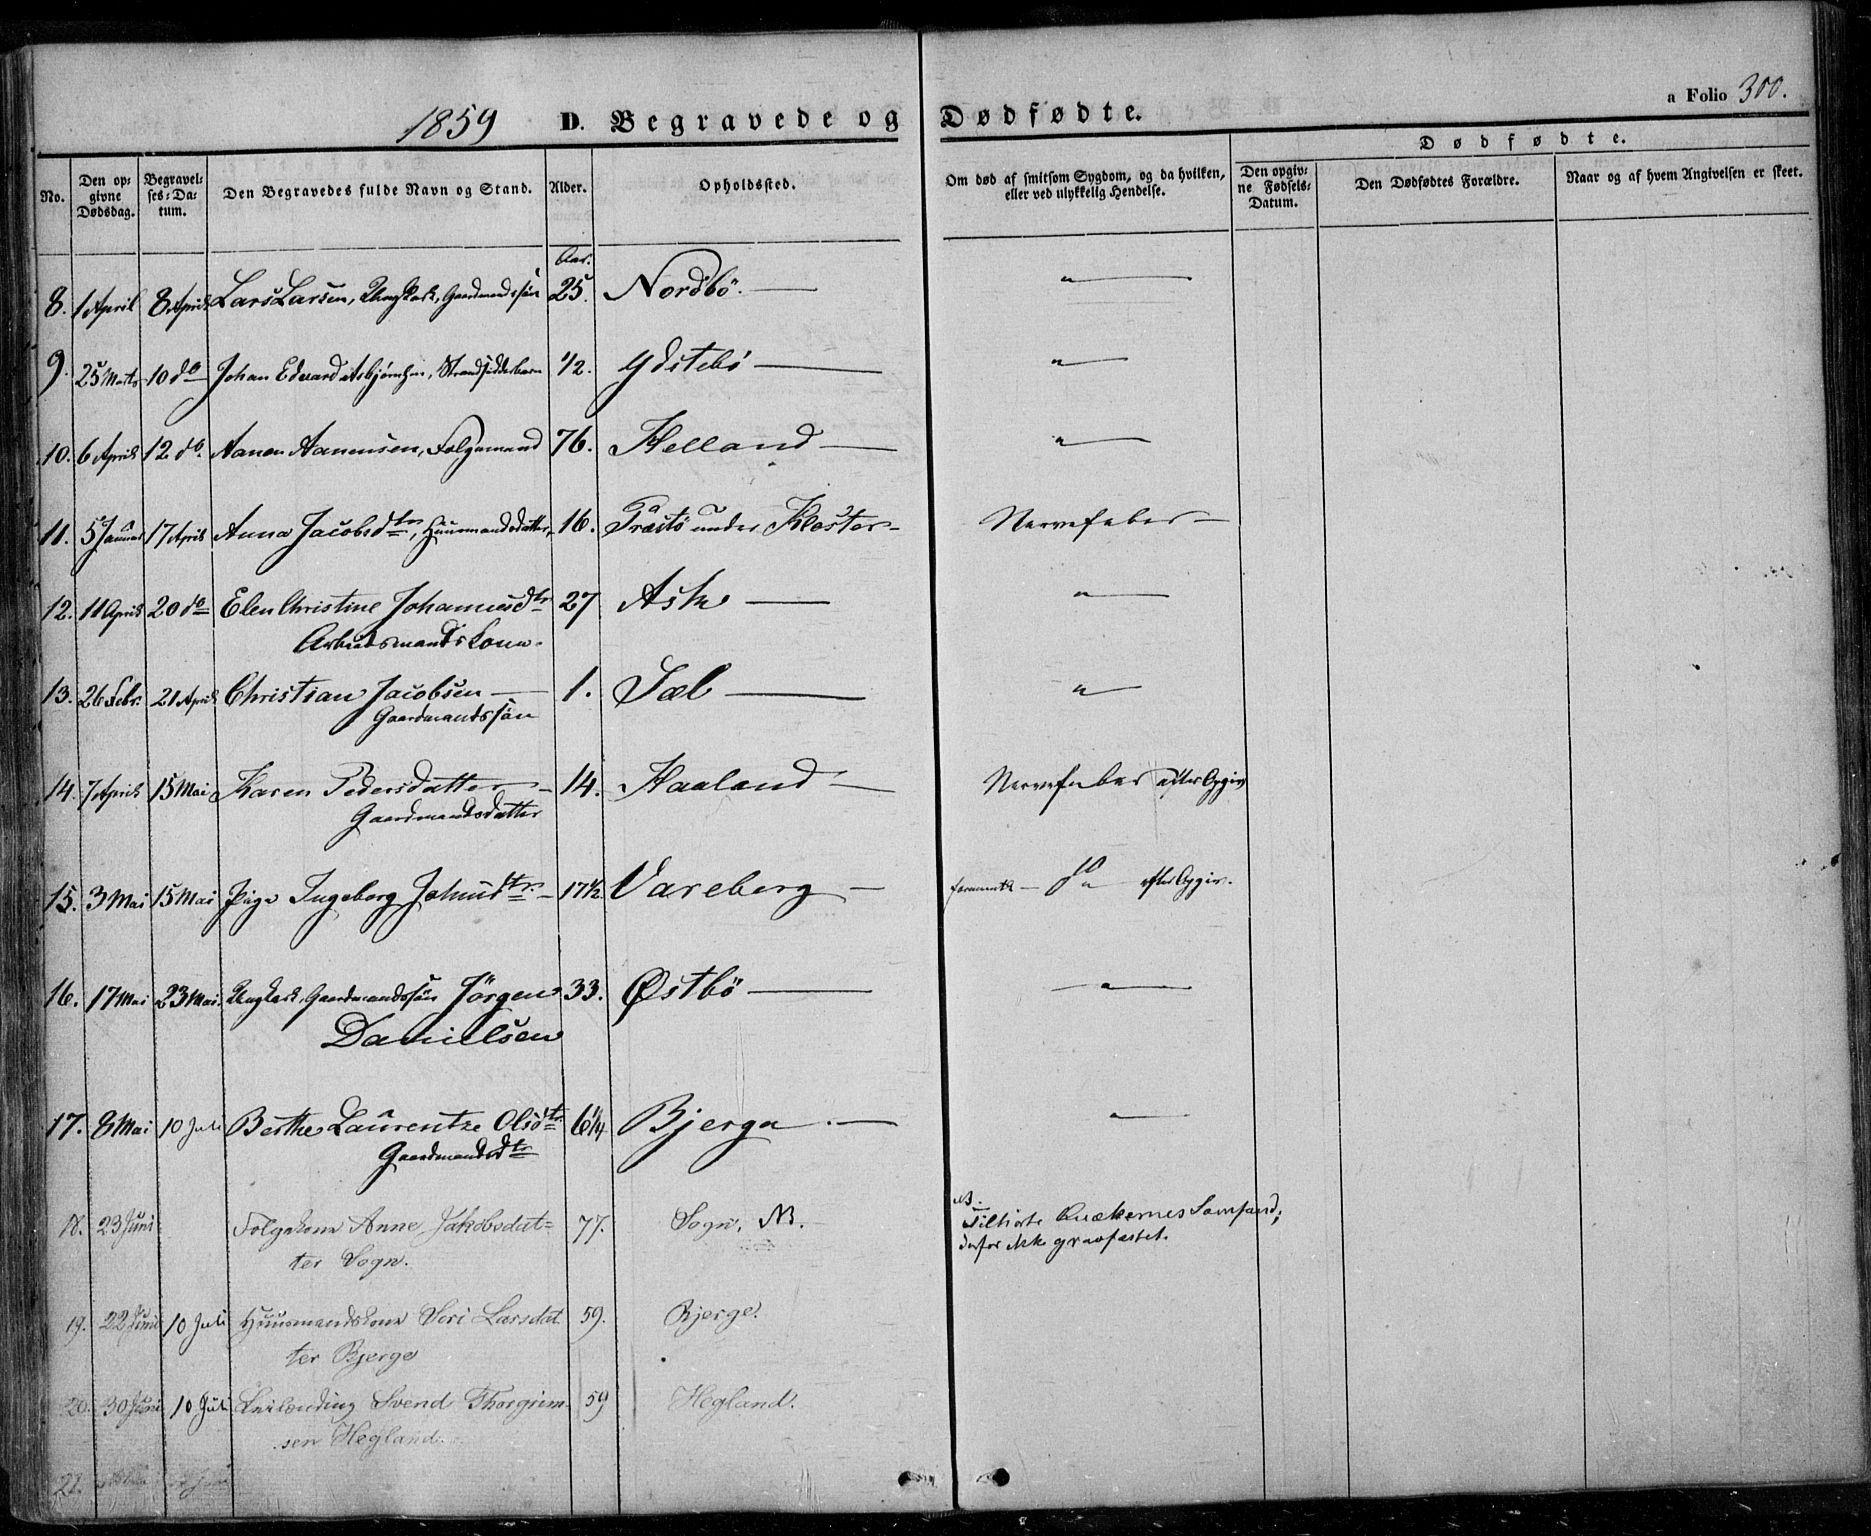 1859 D. Begravede og Dødfødte. a Folio 300.
No. Den opgivne Dødsdag. Begravelses-Datum. Den Begravedes fulde Navn og Stand. Alder. Opholdssted. Om død af smitsom Sygdom, og da hvilken, eller ved ulykkelig Hendelse. Dødfødte. Den opgivne Fødsels-Datum. Den Dødfødtes Forældre. Naar og af hvem Angivelsen er skeet.
Aar.
8. 1 April 8 April Lars Larsen, Ungkarl, Gaardmandssön 25. Nordbö. — " —
9. 25 Marts 10 do Johan Edvard Asbjørnsen, Strandsidderbarn 1/2. Ydstebö — " —
10. 6 April 12 do. Aanen Aanensen, Folgemand 76. Helland — " —
11. 5 Januar 17 April Anna Jacobsdtr, Huusmandsdatter, 16. Træstö under Kloster — Nervefeber —
12. 11 April 20 do Elen Christine Johannesdtr 27 Ask — " —
Arbeidsmandskone.
13. 26 Febr. 21 April Christian Jacobsen — 1. Sæl — " —
Gaardmandssön
14. 7 April 15 Mai Karen Pedersdatter — 14. Haaland — Nervefeber efter Opgiv
Gaardmandsdatter
15. 3 Mai 15 Mai Pige Ingeborg Johnsdtr. — 17 1/2 Vareberg — formentl — do — efter Opgiv.
16. 17 Mai 23 Mai. Ungkarl, Gaardmandssön Jörgen 33. Østbö — " —
Danielsen
17. 8 Mai 10 Juli Berthe Laurentze Olsdtr 6 1/4 Bjerga. — " —
Gaardmandsdtr
18. 23 Juni Folgekone Anne Jakobsdat- 77. Sogn. NB. NB. Tilhörte Quækernes Samfund;
ter Sogn. derfor ikke gravfæstet.
19. 22 Juni 10 Juli Huusmandskone Sori Larsdat 59. Bjerge.
ter Bjerge
20. 30 Juni 10 Juli Leilænding Svend Thorgrim- 59 Hegland.
sen Hegland.
21.